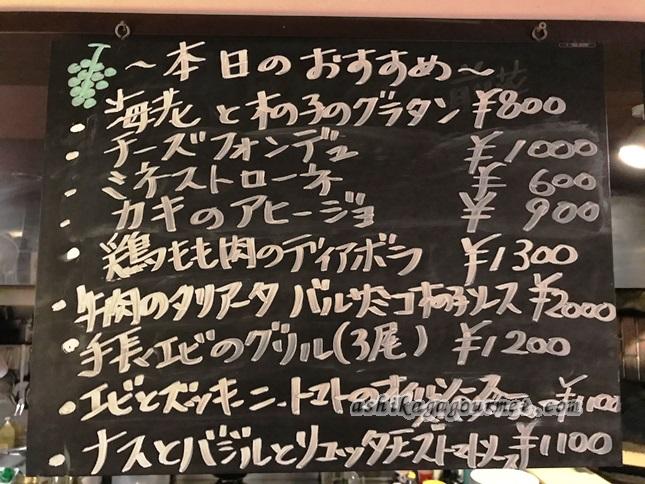 ~本日のおすすめ~
・海老と木の子のグラタン ¥800
・チーズフォンデュ ¥1000
・ミネストローネ ¥600
・カキのアヒージョ ¥900
・鶏もも肉のディアボラ ¥1300
・牛肉のタリアータ バルサミコ木の子ソース ¥2000
・手長エビのグリル(3尾) ¥1200
・エビとズッキーニ、トマトのオイルソース ¥1100
・ナスとバジルとリコッタチーズトマトソース ¥1100
ashikagagourmet.com